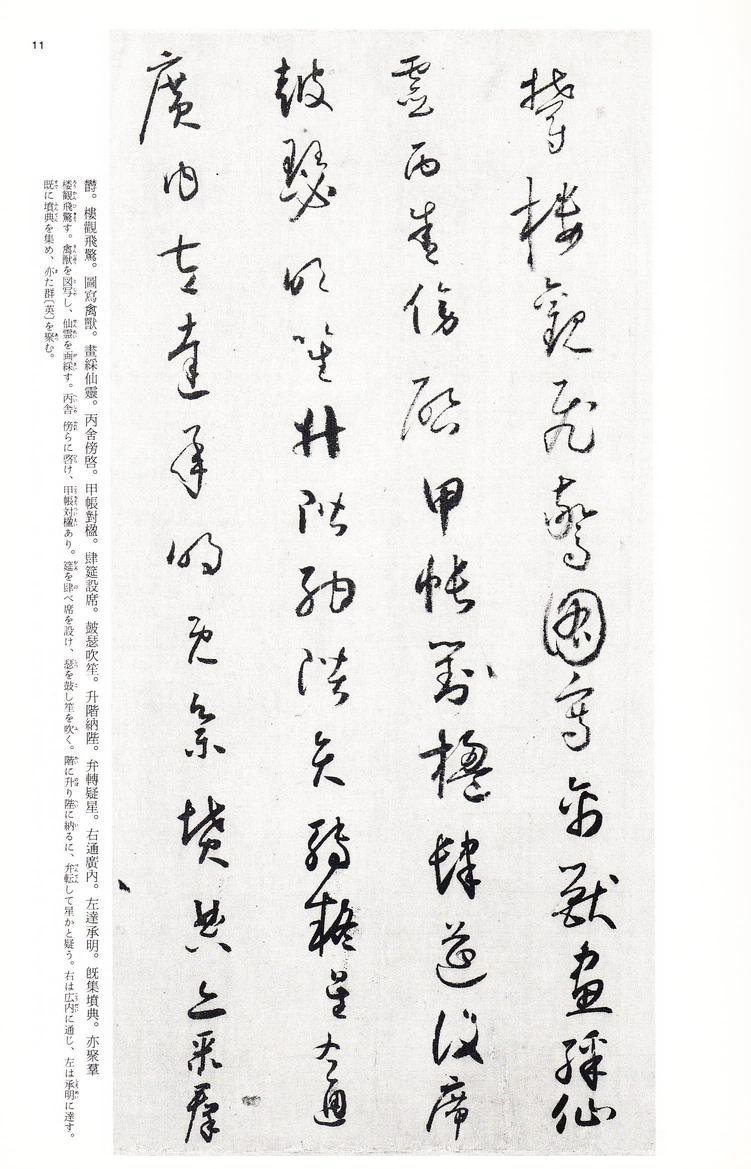 欝樓觀飛驚圖寫禽獸畫綵仙
靈丙舍傍啓甲帳對楹肆筵設席
皷瑟吹笙升階納陛弁轉疑星右通
廣內左達承明既集墳典亦聚群
欝。樓觀飛驚。圖寫禽獸。畫綵仙靈。丙舍傍啓。甲帳對楹。肆筵設席。皷瑟吹笙。升階納陛。弁轉疑星。右通廣內。左達承明。旣集墳典。亦聚羣
楼観飛驚す。禽獣を図写し、仙霊を画綵す。丙舎 傍らに啓け、甲帳対楹あり。筵を肆べ席を設け、瑟を鼓し笙を吹く。階に升り陛に納るに、弁転して星かと疑う。右は広内に通じ、左は承明に達す。
既に墳典を集め、亦た群〔英〕を聚む。
11